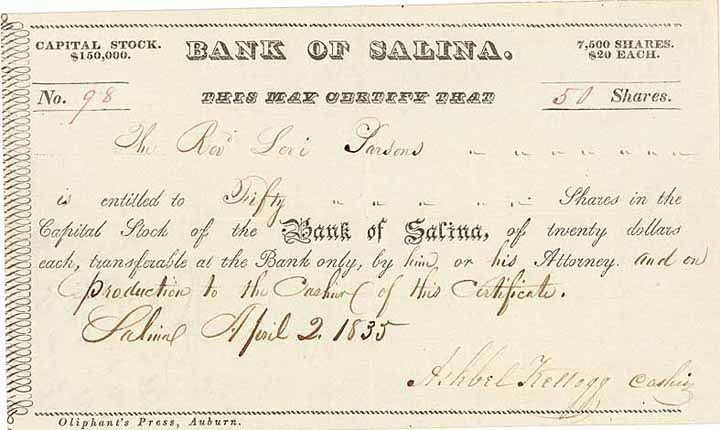 CAPITAL STOCK. $150,000.
BANK OF SALINA.
7,500 SHARES. $20 EACH.
No. 98
THIS MAY CERTIFY THAT
50 Shares.
The Revd Levi Parsons
is entitled to Fifty Shares in the
Capital Stock of the Bank of Salina, of twenty dollars
each, transferable at the Bank only, by him or his Attorney. and on
production to the Cashier of this Certificate.
Salina April 2. 1835
Ashbel Kellogg Cashier
Oliphant's Press, Auburn.